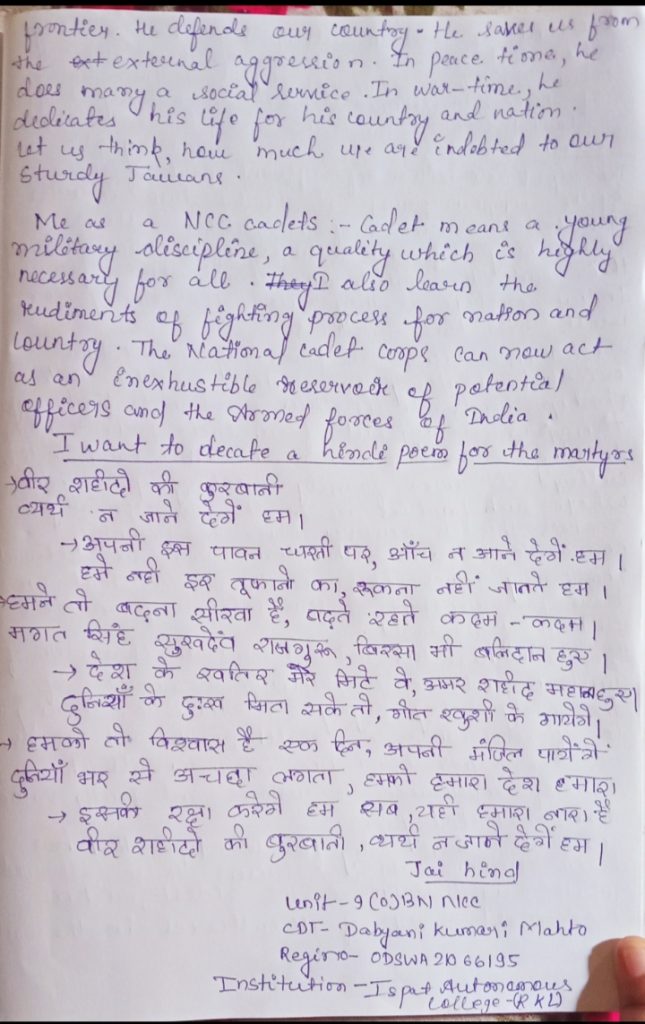 frontier. He defends our country. He saves us from
the ext external aggression. In peace time, he
does many a social service. In war-time, he
dedicates his life for his country and nation.
Let us think, how much we are indebted to our
Sturdy Jawans.
Me as a NCC cadets :- Cadet means a young
military discipline, a quality which is highly
necessary for all. They I also learn the
rudiments of fighting process for nation and
Country. The National cadet corps can now act
as an inexhustible reservoir of potential
officers and the Armed forces of India.
I want to decate a hindi poem for the martyrs
→वीर शहीदो की कुरबानी
व्यर्थ न जाने देगें हम।
→अपनी इस पावन धरती पर, आँच न आने देगें हम।
हमे नही डर तूफानो का, रूकना नहीं जानते हम।
→हमने तो बढ़ना सीखा है, बढ़ते रहते कदम-कदम।
भगत सिंह सुखदेव राजगुरू, बिरसा भी बलिदान हुए।
→ देश के खातिर मर मिटे वे, अमर शहीद महान हुए।
दुनियाँ के दुःख मिटा सके तो, गीत खुशी के गायेगे।
→ हमको तो विश्वास है एक दिन, अपनी मंजिल पायेंगें
दुनियाँ भर से अच्छा लगता, हमको हमारा देश हमारा
→ इसकी रक्षा करेगे हम सब, यही हमारा नारा है
वीर शहीदो की कुरबानी, व्यर्थ न जाने देगें हम।
Jai hind
Unit-9(O)BN NCC
CDT- Dabyani Kumari Mahto
Regino- ODSWA2066195
Institution - Ispat Autonomous
College-(RKL)